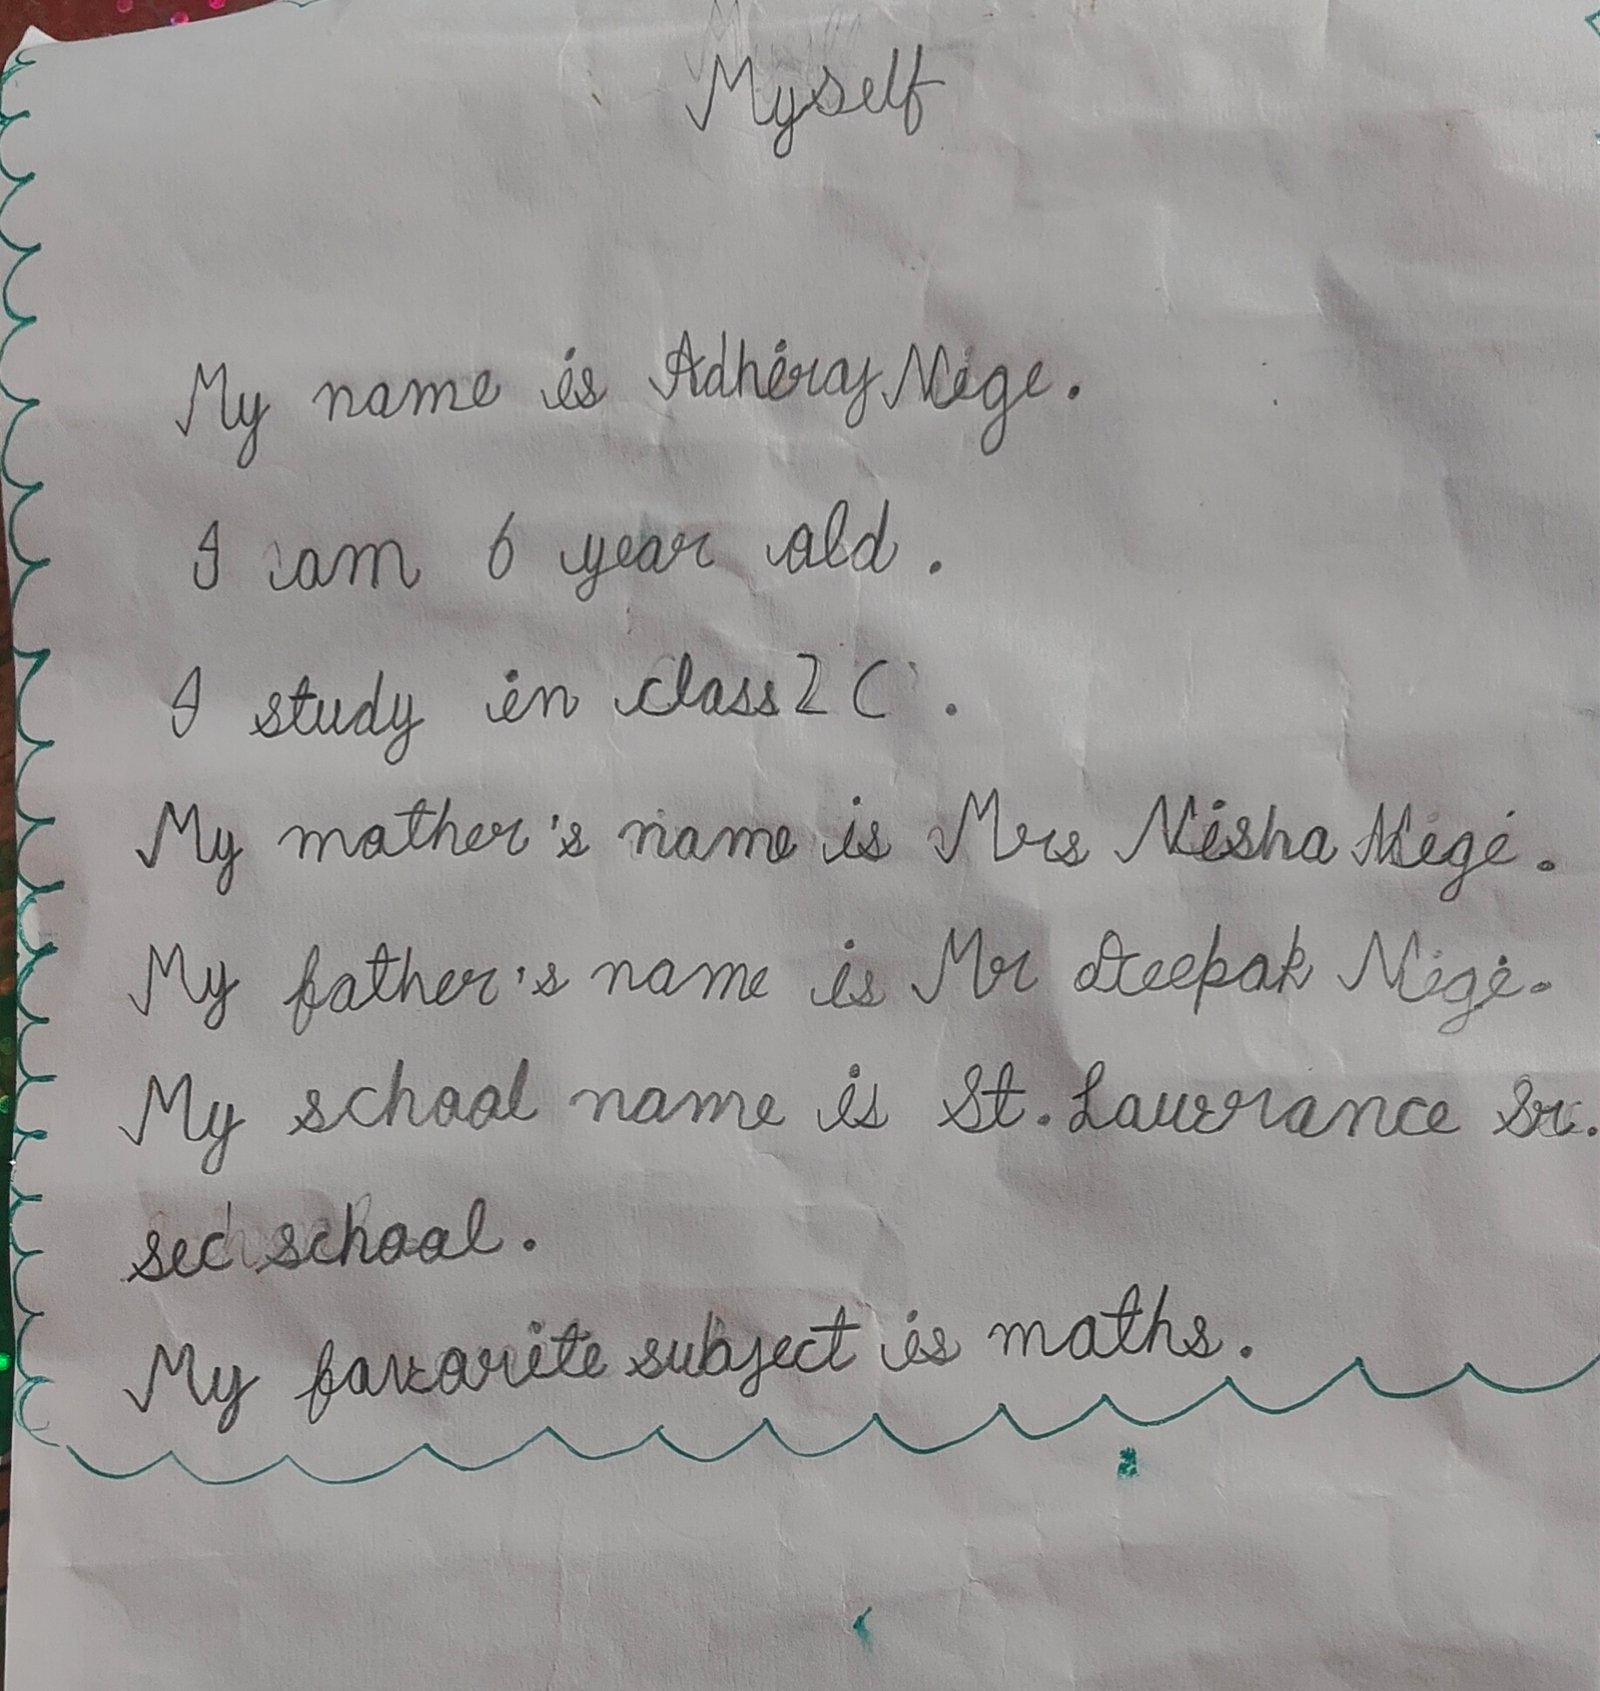 Myself
My name is Adhiraj Negi.
I am 6 year old.
I study in class 2 C.
My mother's name is Mrs Nisha Negi.
My father's name is Mr Deepak Negi.
My school name is St. Lawrance Sr.
sec school.
My favorite subject is maths.